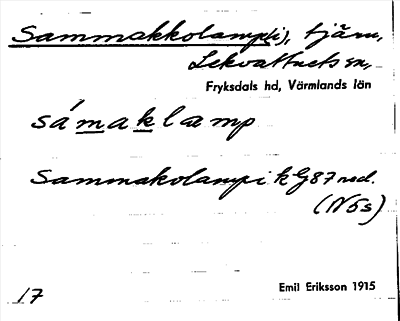 Sammakkolamp(i), tjärn,
Lekvattnets sn,
Fryksdals hd, Värmlands län
sámaklamp
Sammakolampi k G87 ned.
(N5s)
17
Emil Eriksson 1915